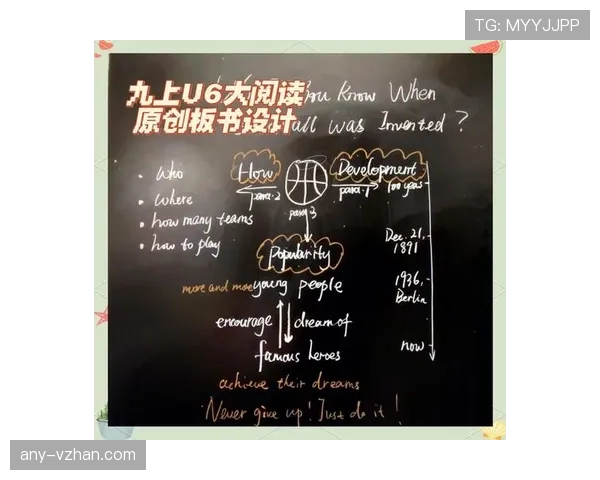 TG: MYYJJPP
九上U6大阅读
原创板书设计
You Know When
all was Invented?
• Who
• Where
• how many teams
• how to play
How
para.2
para.3
Development
para.1
100 years
Dec. 21,
1891
1936,
Berlin
now
Popularity
more and more young people
encourage
dream of
famous heroes
achieve their dreams
Never give up! Just do it!
any-vzhan.com